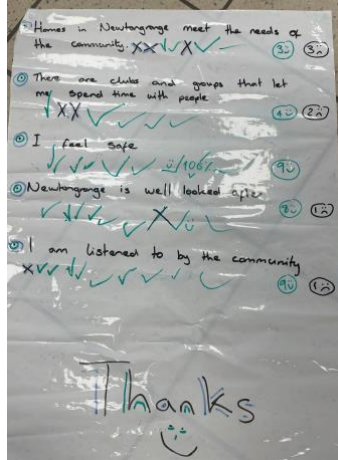 Homes in Newtongrange meet the needs of
the community. XX✓✓X✓ 3 3
There are clubs and groups that let
me spend time with people
2
I feel safe
9
Newtongrange is well looked after
8 1
I am listened to by the community
9 1
Thanks